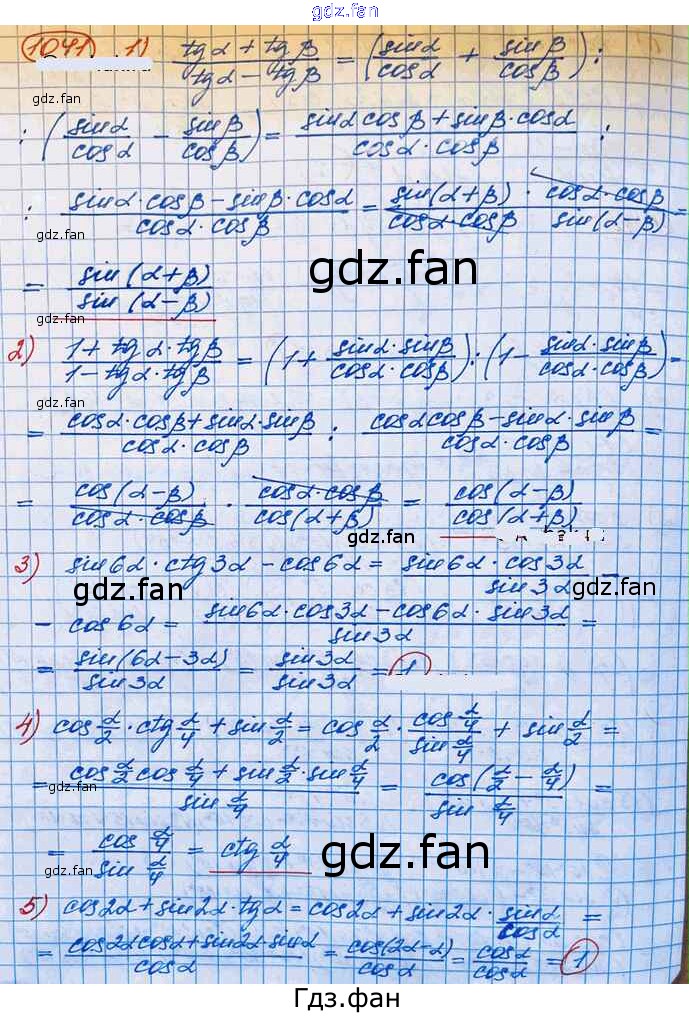 gdz.fan
1041 1) (tgα + tgβ)/(tgα − tgβ) = (sinα/cosα + sinβ/cosβ) :
gdz.fan gdz.fan
: (sinα/cosα − sinβ/cosβ) = (sinα cosβ + sinβ · cosα)/(cosα · cosβ) :
: (sinα · cosβ − sinβ · cosα)/(cosα · cosβ) = sin(α+β)/(cosα · cosβ) · (cosα · cosβ)/sin(α−β) =
gdz.fan gdz.fan
gdz.fan
= sin(α+β)/sin(α−β)
gdz.fan
2) (1 + tgα · tgβ)/(1 − tgα · tgβ) = (1 + (sinα · sinβ)/(cosα · cosβ)) : (1 − (sinα · sinβ)/(cosα · cosβ)) =
gdz.fan gdz.fan
= (cosα · cosβ + sinα · sinβ)/(cosα · cosβ) : (cosα cosβ − sinα · sinβ)/(cosα · cosβ) =
= cos(α−β)/(cosα · cosβ) · (cosα · cosβ)/cos(α+β) = cos(α−β)/cos(α+β)
gdz.fan
3) sin6α · ctg3α − cos6α = (sin6α · cos3α)/sin3α −
gdz.fan gdz.fan
− cos6α = (sin6α · cos3α − cos6α · sin3α)/sin3α =
= sin(6α − 3α)/sin3α = sin3α/sin3α = 1
gdz.fan
4) cos α/2 · ctg α/4 + sin α/2 = cos α/2 · (cos α/4)/(sin α/4) + sin α/2 =
= (cos α/2 cos α/4 + sin α/2 · sin α/4)/(sin α/4) = cos(α/2 − α/4)/(sin α/4) =
gdz.fan
= (cos α/4)/(sin α/4) = ctg α/4
gdz.fan
gdz.fan
5) cos2α + sin2α · tgα = cos2α + sin2α · sinα/cosα =
= (cos2α cosα + sin2α · sinα)/cosα = cos(2α−α)/cosα = cosα/cosα = 1
Гдз.фан